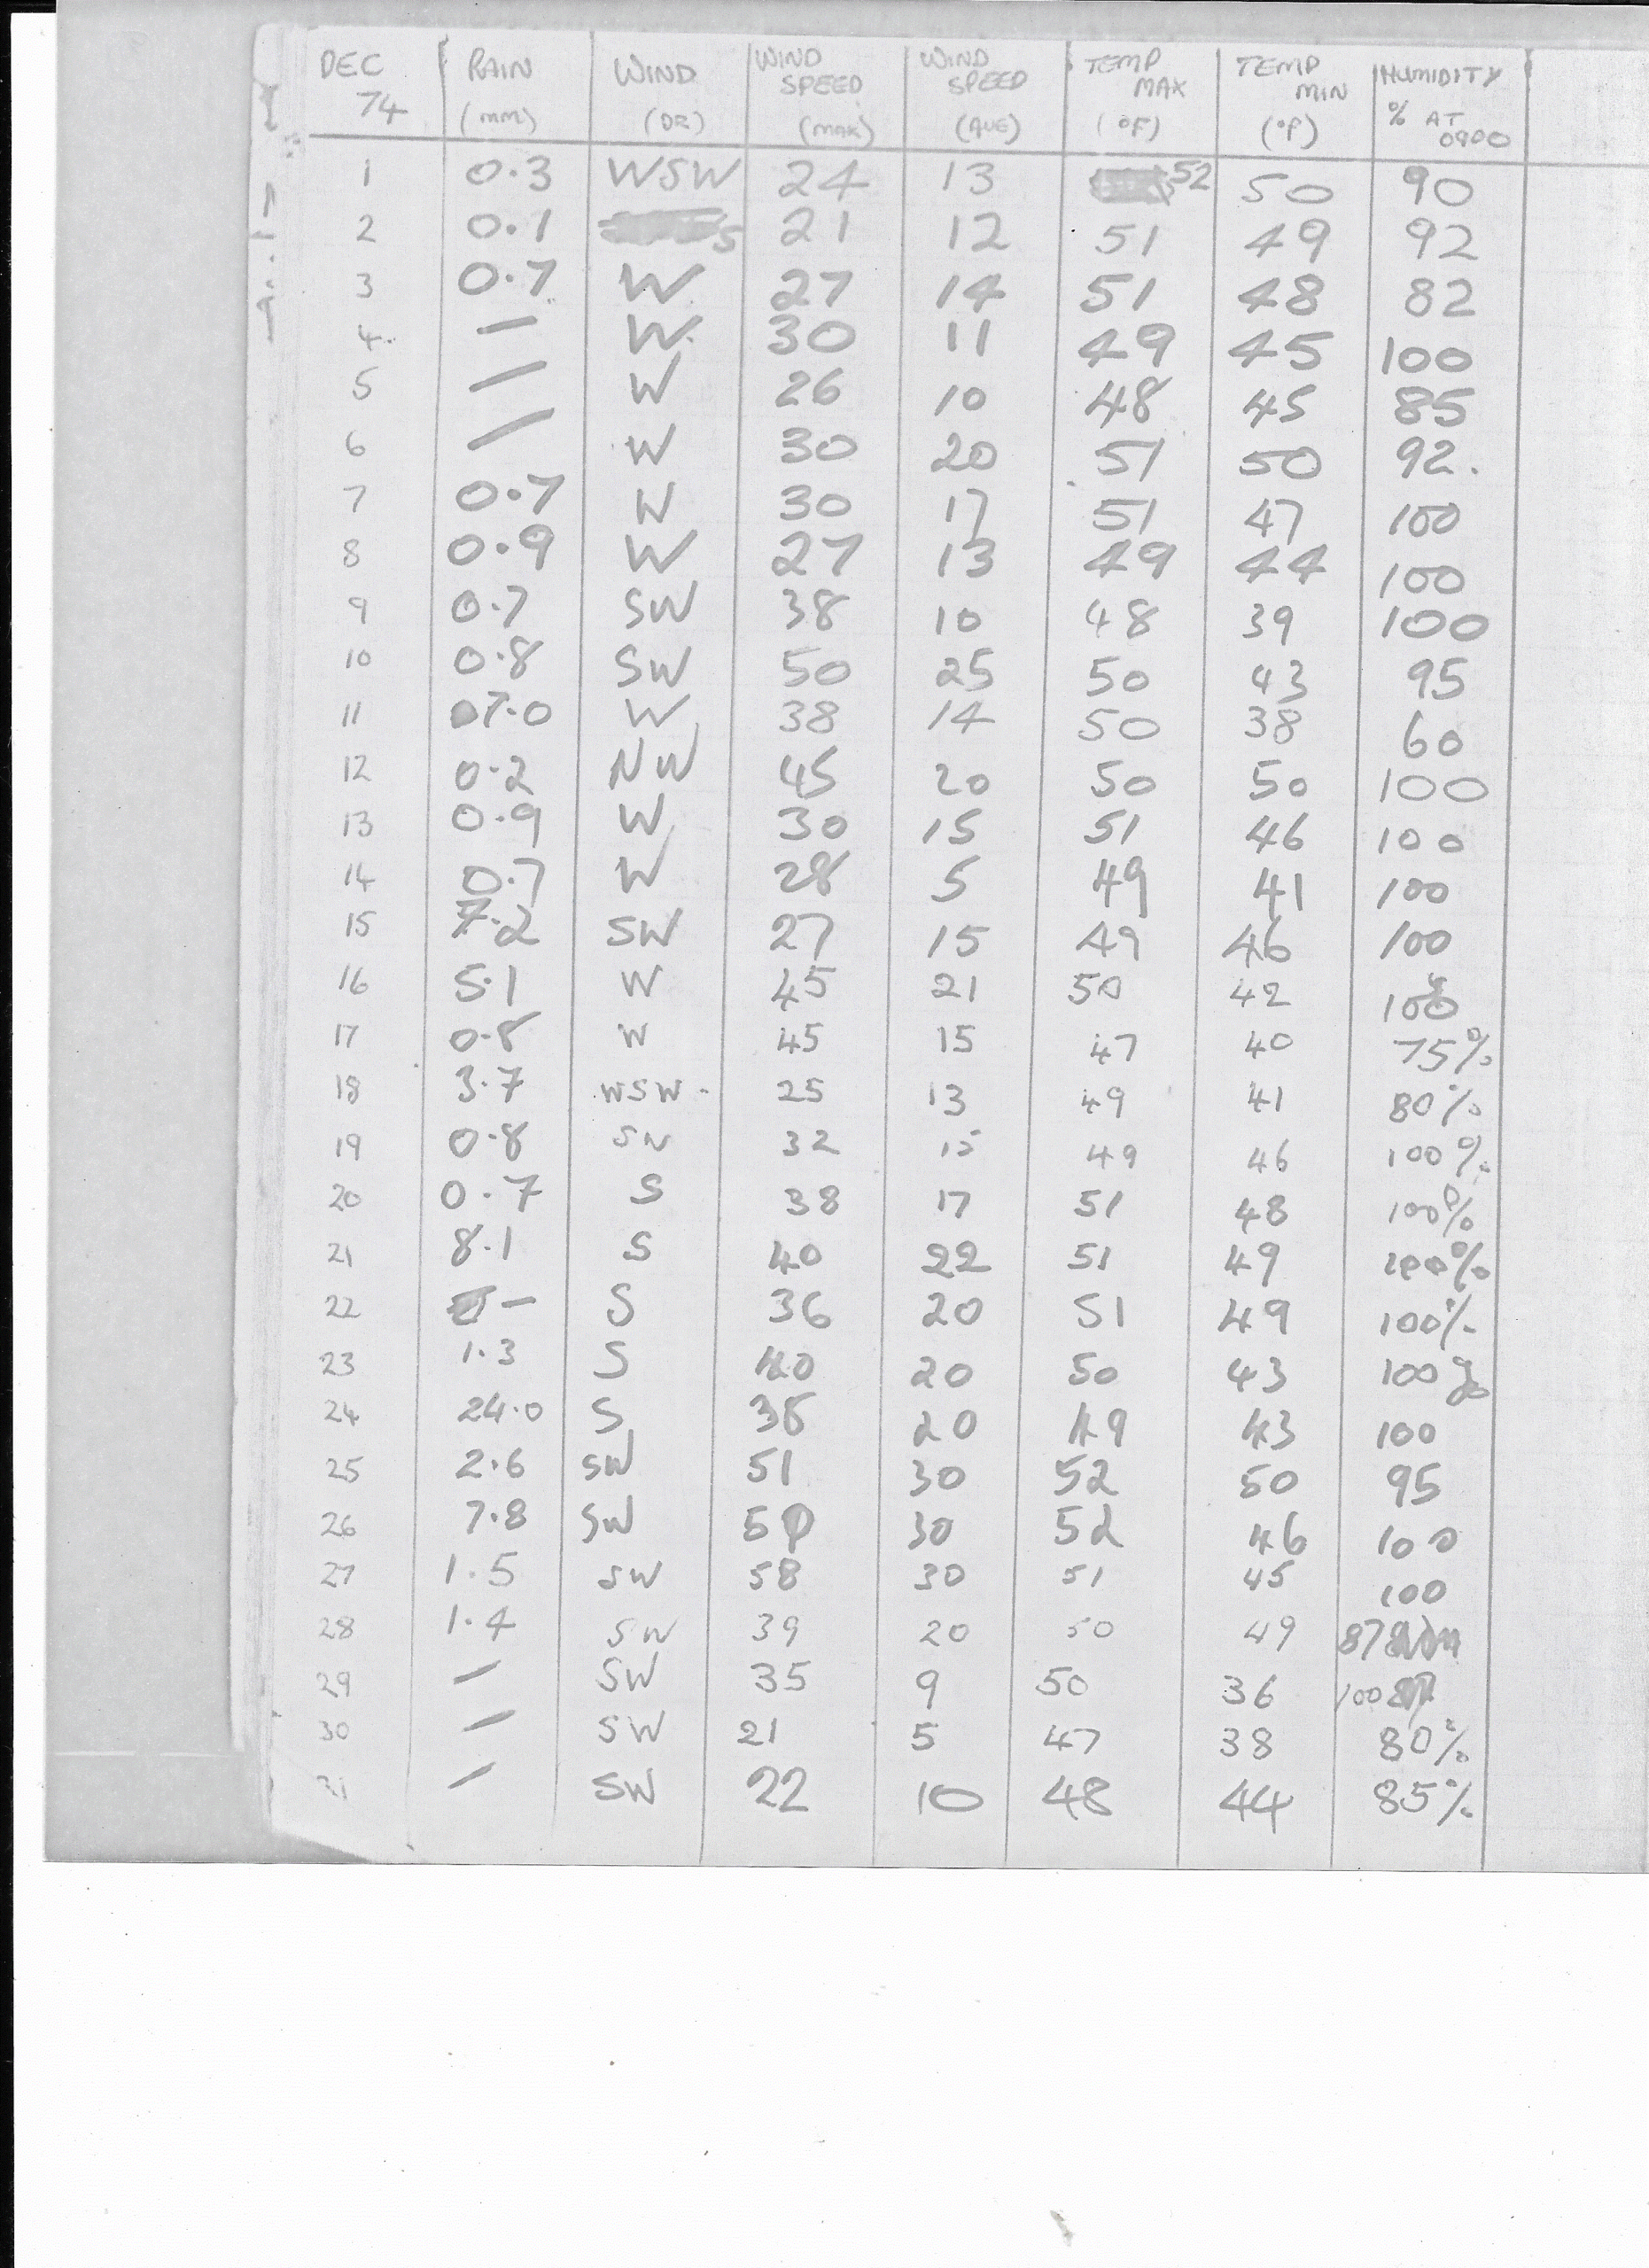 DEC 74 RAIN (MM) WIND (DR) WIND SPEED (MAX) WIND SPEED (AVE) TEMP MAX (°F) TEMP MIN (°F) HUMIDITY % AT 0900
1 0.3 WSW 24 13 52 50 90
2 0.1 S 21 12 51 49 92
3 0.7 W 27 14 51 48 82
4 — W 30 11 49 45 100
5 — W 26 10 48 45 85
6 — W 30 20 51 50 92.
7 0.7 W 30 17 51 47 100
8 0.9 W 27 13 49 44 100
9 0.7 SW 38 10 48 39 100
10 0.8 SW 50 25 50 43 95
11 7.0 W 38 14 50 38 60
12 0.2 NW 45 20 50 50 100
13 0.9 W 30 15 51 46 100
14 0.7 W 28 5 49 41 100
15 7.2 SW 27 15 49 46 100
16 5.1 W 45 21 50 42 100
17 0.8 W 45 15 47 40 75%
18 3.7 WSW 25 13 49 41 80%
19 0.8 SW 32 15 49 46 100%
20 0.7 S 38 17 51 48 100%
21 8.1 S 40 22 51 49 100%
22 — S 36 20 51 49 100%
23 1.3 S 40 20 50 43 100%
24 24.0 S 38 20 49 43 100
25 2.6 SW 51 30 52 50 95
26 7.8 SW 50 30 52 46 100
27 1.5 SW 58 30 51 45 100
28 1.4 SW 39 20 50 49 87
29 — SW 35 9 50 36 100
30 — SW 21 5 47 38 80%
31 — SW 22 10 48 44 85%